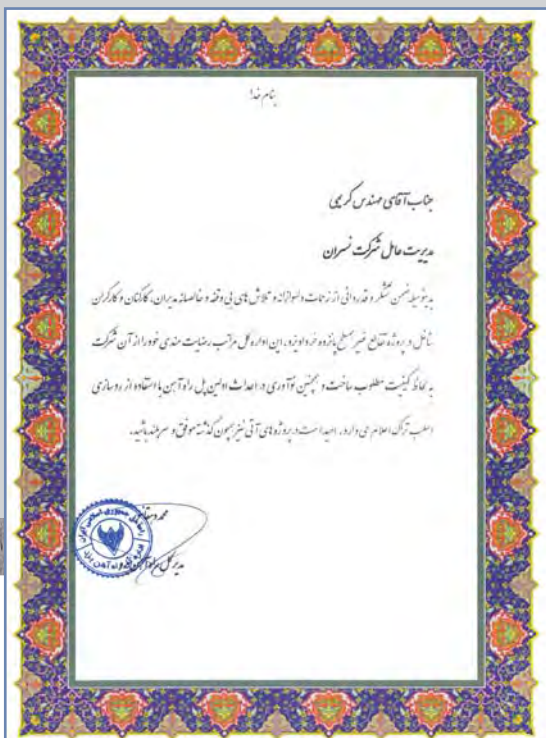 بنام خدا
جناب آقای مهندس کریمی
مدیریت عامل شرکت نسران
بدینوسیله ضمن تشکر و قدردانی از زحمات دلسوزانه و تلاش های بی وقفه و خالصانه مدیران، کارکنان و کارگران
شاغل در پروژه تقاطع غیر مسطح پانزده خرداد یزد، این اداره کل مراتب رضایت مندی خود را از آن شرکت
به لحاظ کیفیت مطلوب ساخت و همچنین نوآوری در احداث اولین پل راه آهن با استفاده از روسازی
اسلب ترک اعلام می دارد. امید است در پروژه های آتی نیز همچون گذشته موفق و سربلند باشید.
محمد
مدیر کل راه آهن
راه آهن جمهوری اسلامی ایران